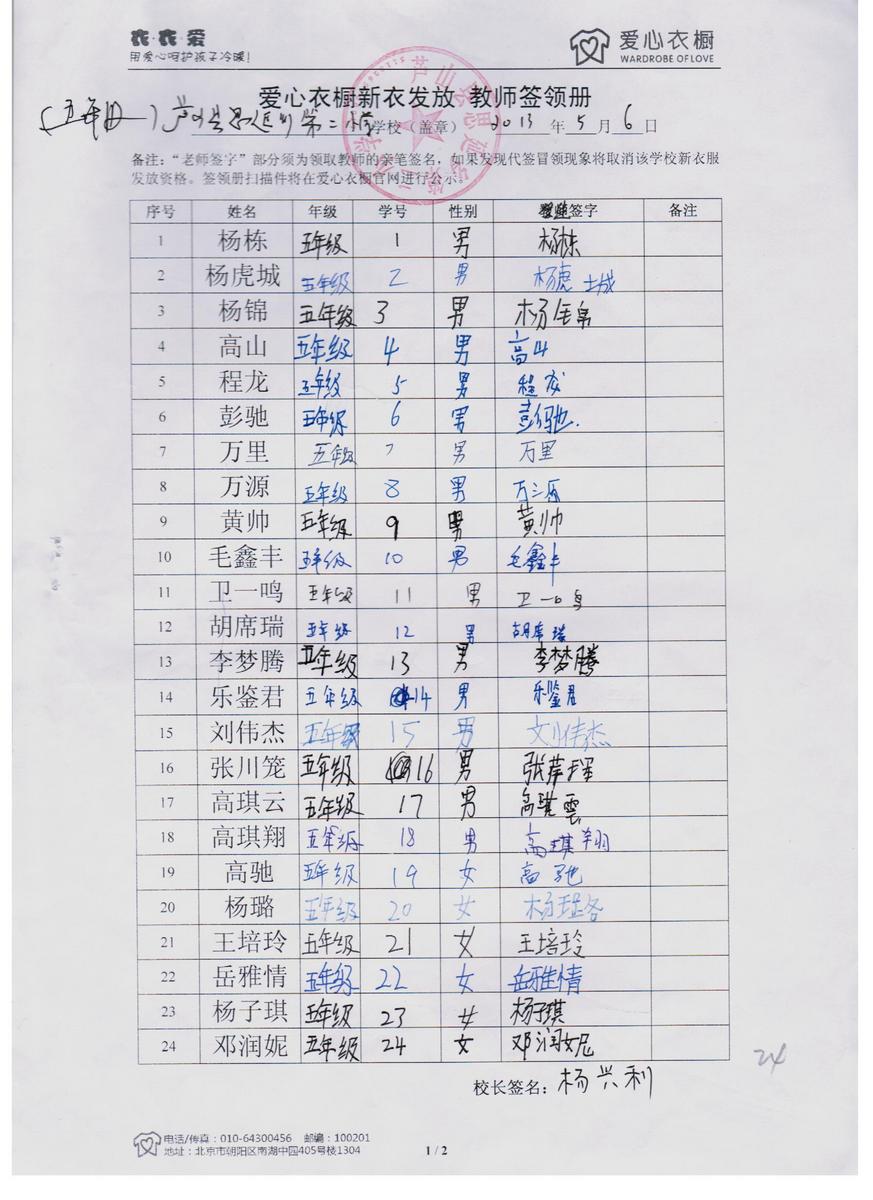 衣·衣·爱
用爱心呵护孩子冷暖!
爱心衣橱
WARDROBE OF LOVE
爱心衣橱新衣发放 教师签领册
(五年级)芦山县思延乡第二小学 学校（盖章） 2013 年 5 月 6 日
备注：“老师签字”部分须为领取教师的亲笔签名，如果发现代签冒领现象将取消该学校新衣服
发放资格。签领册扫描件将在爱心衣橱官网进行公示。
序号 姓名 年级 学号 性别 签字 备注
1 杨栋 五年级 1 男 杨栋
2 杨虎城 五年级 2 男 杨虎城
3 杨锦 五年级 3 男 杨锦
4 高山 五年级 4 男 高山
5 程龙 五年级 5 男 程龙
6 彭驰 五年级 6 男 彭驰.
7 万里 五年级 7 男 万里
8 万源 五年级 8 男 万源
9 黄帅 五年级 9 男 黄帅
10 毛鑫丰 五年级 10 男 毛鑫丰
11 卫一鸣 五年级 11 男 卫一鸣
12 胡席瑞 五年级 12 男 胡席瑞
13 李梦腾 五年级 13 男 李梦腾
14 乐鉴君 五年级 14 男 乐鉴君
15 刘伟杰 五年级 15 男 刘伟杰
16 张川笼 五年级 16 男
17 高琪云 五年级 17 男 高琪雲
18 高琪翔 五年级 18 男 高琪翔
19 高驰 五年级 19 女 高驰
20 杨璐 五年级 20 女 杨璐
21 王培玲 五年级 21 女 王培玲
22 岳雅情 五年级 22 女 岳雅情
23 杨子琪 五年级 23 女 杨子琪
24 邓润妮 五年级 24 女 邓润妮
24
校长签名：杨兴利
电话/传真：010-64300456 邮编：100201
地址：北京市朝阳区南湖中园405号楼1304
1 / 2